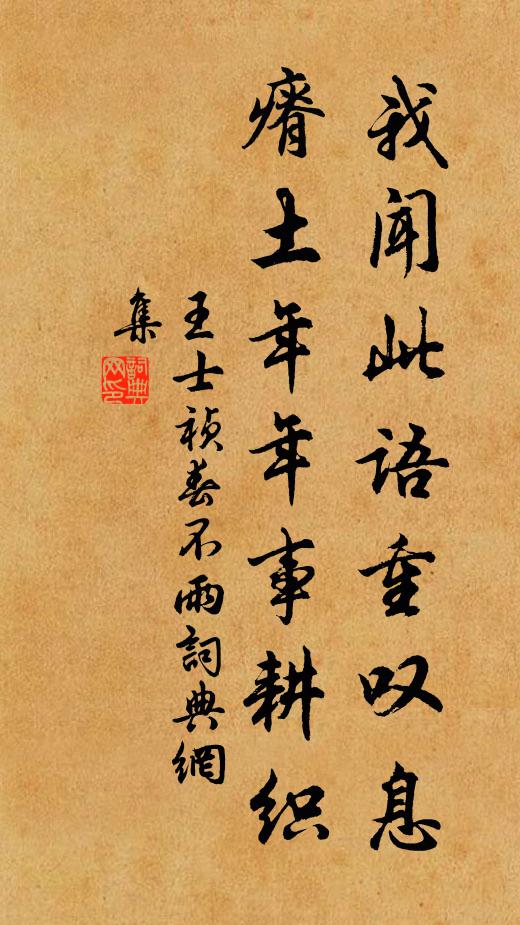 我闻此语重叹息
瘠土年年事耕织
王士祯春不雨詞典網
集
詞典
网印